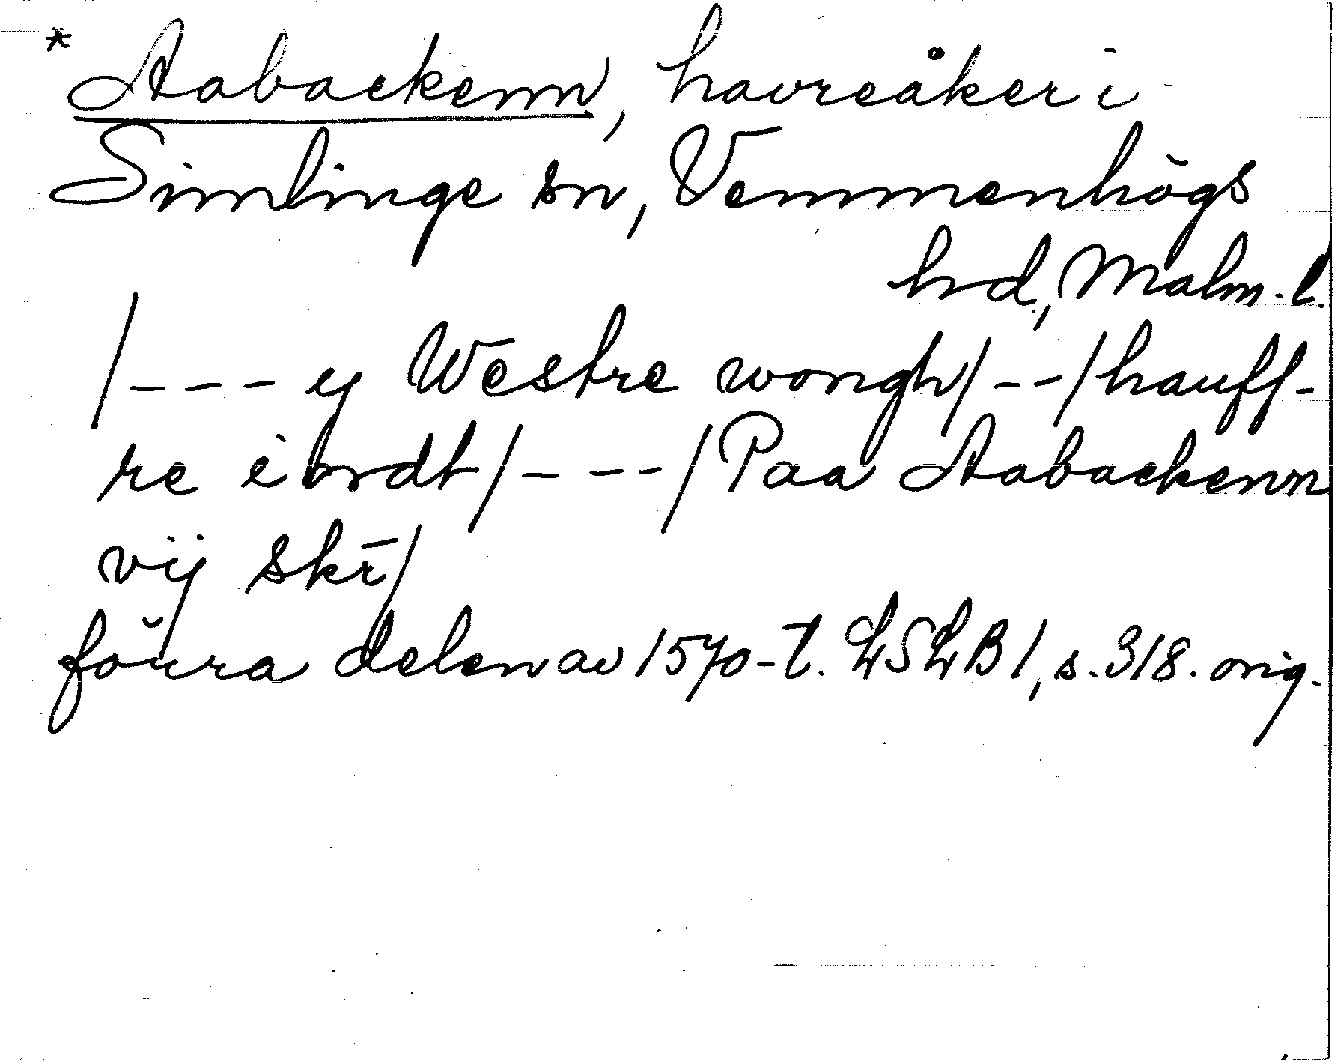 * Aabackenn, havreåker i
Simlinge sn, Vemmenhögs
hd, Malm. l.
/--- y Westre wongh/--/hauff-
re iordt/---/Paa Aabackenn
vij skr̄/
förra delen av 1570-t. LSLB 1, s. 318. orig.